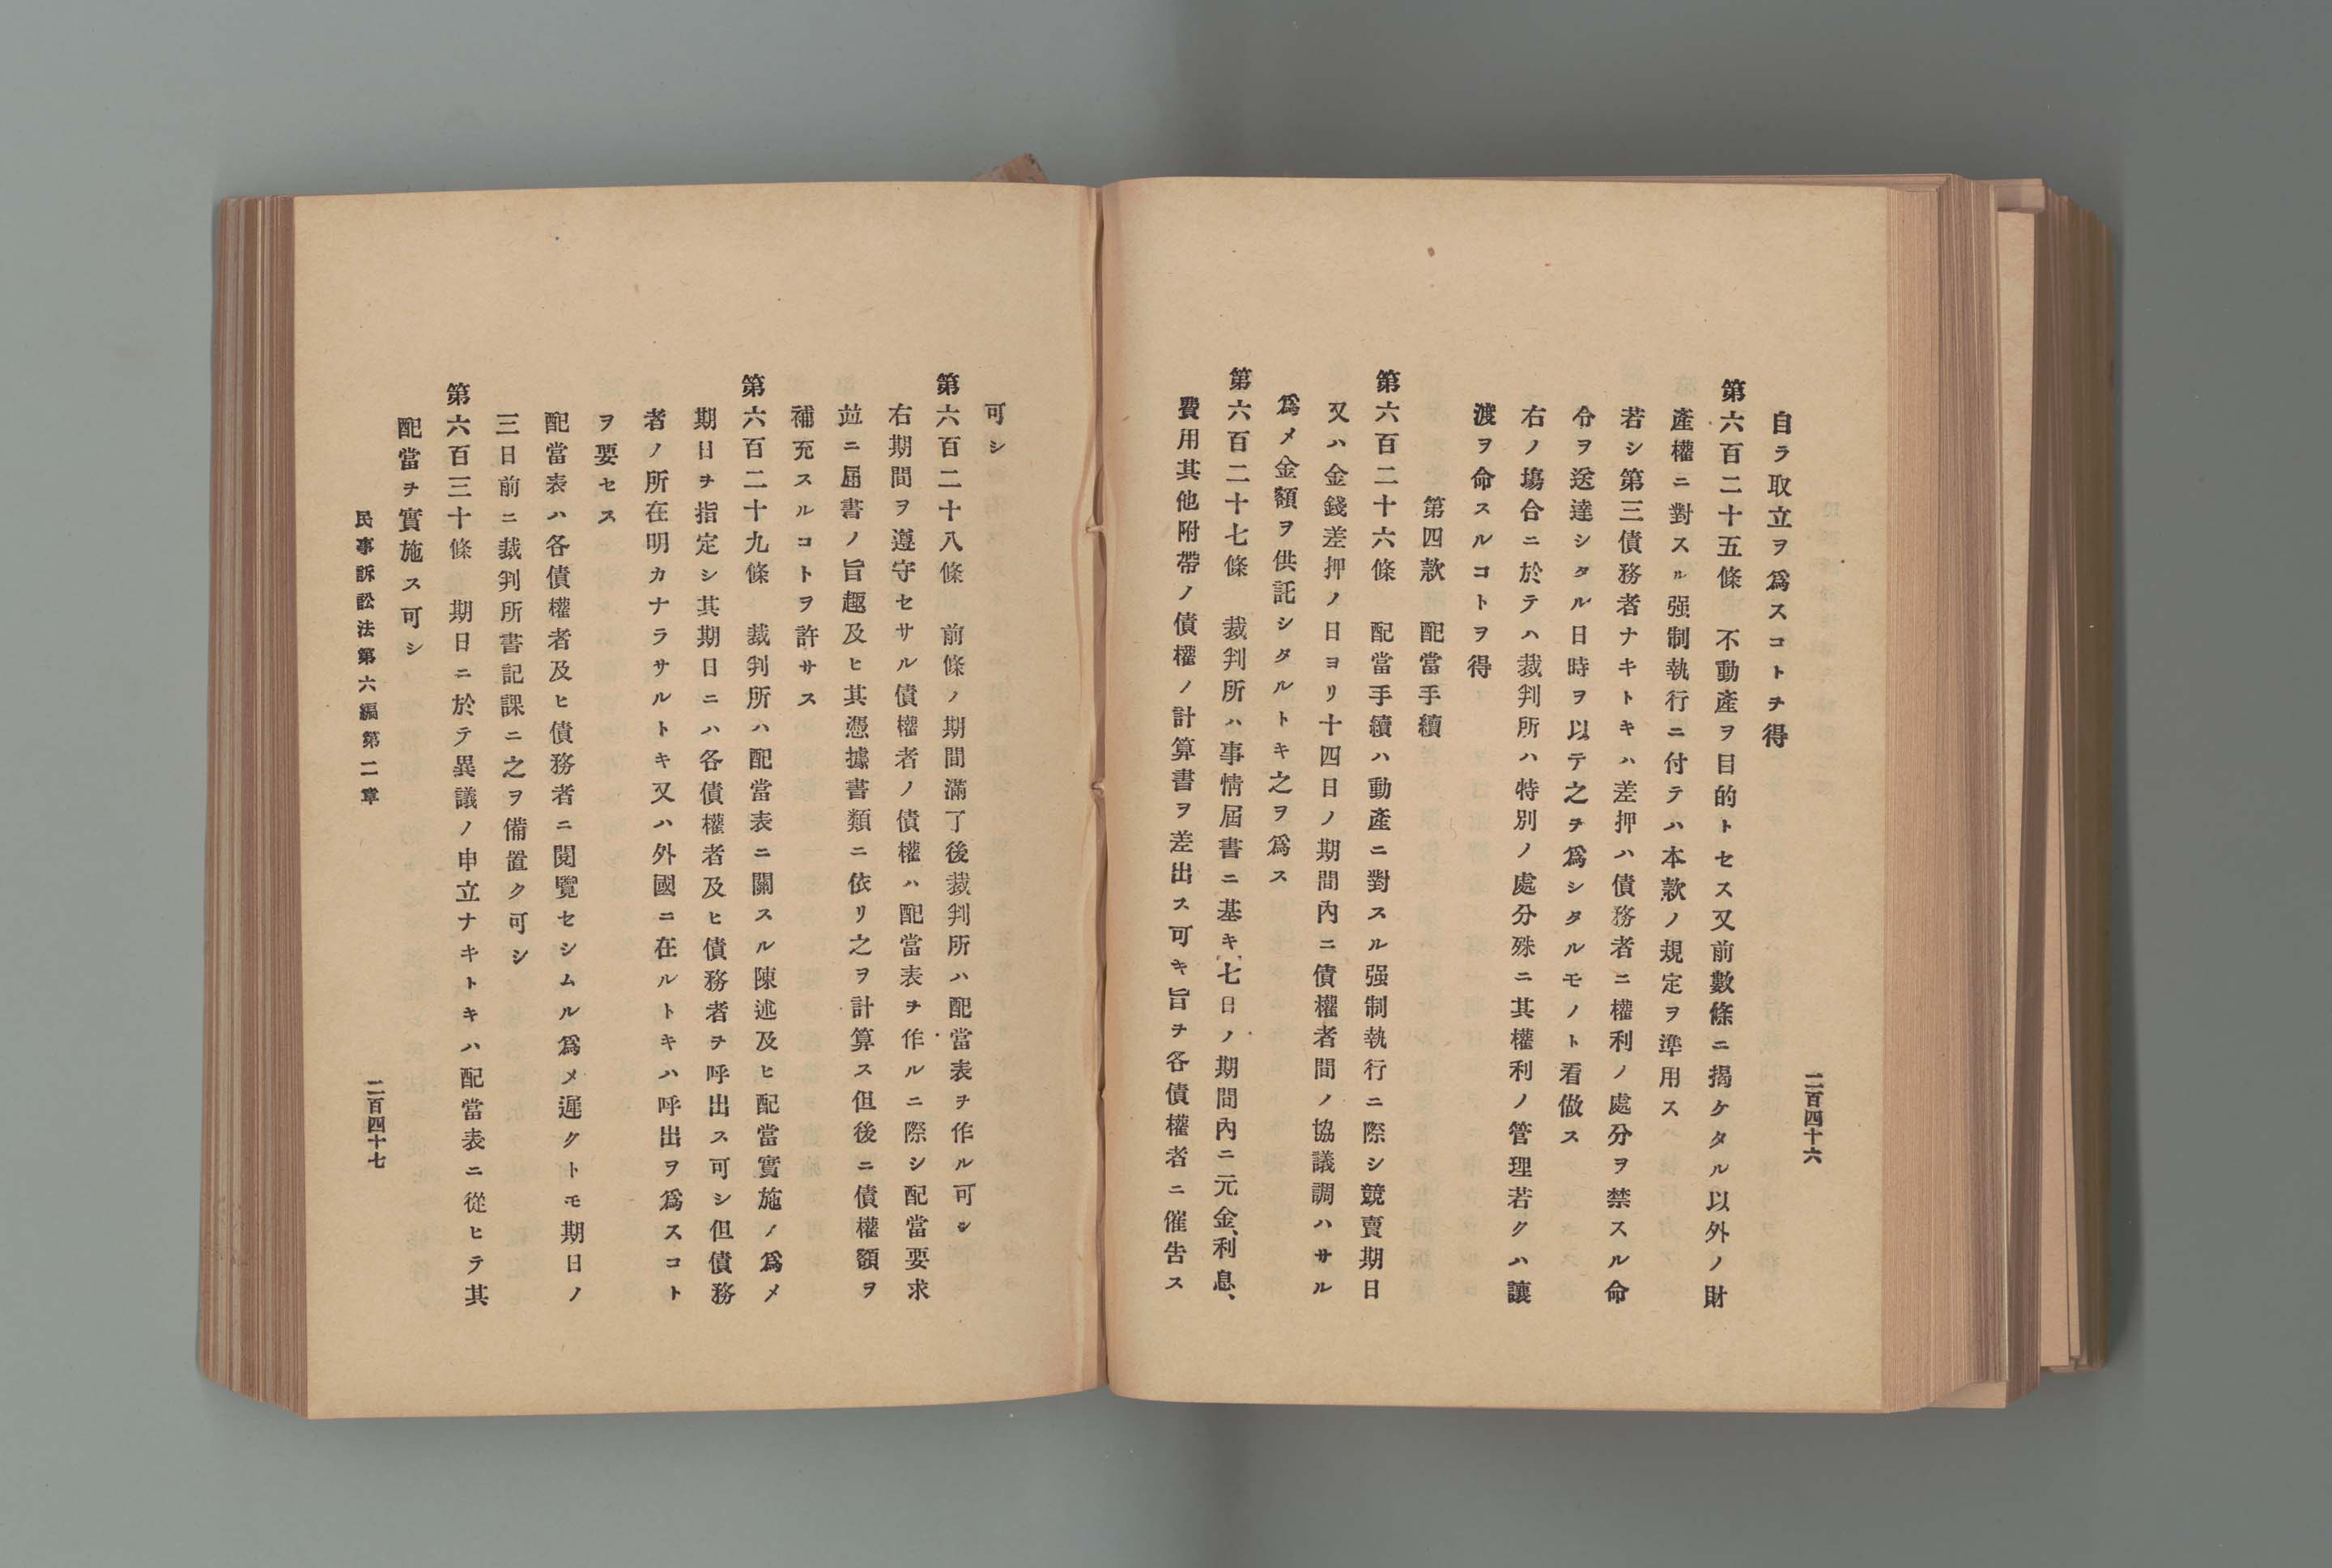 二百四十六
自ラ取立ヲ爲スコトチ得
第六百二十五條　不動產ヲ目的トセス又前數條ニ揭ケタル以外ノ財
產權ニ對スル强制執行ニ付テハ本款ノ規定ヲ準用ス
若シ第三債務者ナキトキハ差押ハ債務者ニ權利ノ處分ヲ禁スル命
令ヲ送達シタル日時ヲ以テ之チ爲シタルモノト看做ス
右ノ塲合ニ於テハ裁判所ハ特別ノ處分殊ニ其權利ノ管理若クハ讓
渡ヲ命スルコトヲ得
第四款　配當手續
第六百二十六條　配當手續ハ動產ニ對スル强制執行ニ際シ競賣期日
又ハ金錢差押ノ日ヨリ十四日ノ期間內ニ債權者間ノ協議調ハサル
爲メ金額ヲ供託シタルトキ之ヲ爲ス
第六百二十七條　裁判所ハ事情屆書ニ基キ七日ノ期間內ニ元金、利息、
費用其他附帶ノ債權ノ計算書ヲ差出ス可キ旨チ各債權者ニ催告ス
可シ
第六百二十八條　前條ノ期間滿了後裁判所ハ配當表ヲ作ル可シ
右期間ヲ遵守セサル債權者ノ債權ハ配當表チ作ルニ際シ配當要求
竝ニ屆書ノ旨趣及ヒ其憑據書類ニ依リ之ヲ計算ス但後ニ債權額ヲ
補充スルコトヲ許サス
第六百二十九條　裁判所ハ配當表ニ關スル陳述及ヒ配當實施ノ爲メ
期日チ指定シ其期日ニハ各債權者及ヒ債務者チ呼出ス可シ但債務
者ノ所在明カナラサルトキ又ハ外國ニ在ルトキハ呼出ヲ爲スコト
ヲ要セス
配當表ハ各債權者及ヒ債務者ニ閱覽セシムル爲メ遲クトモ期日ノ
三日前ニ裁判所書記課ニ之ヲ備置ク可シ
第六百三十條　期日ニ於テ異議ノ申立ナキトキハ配當表ニ從ヒテ其
配當チ實施ス可シ
民事訴訟法第六編第二章
二百四十七